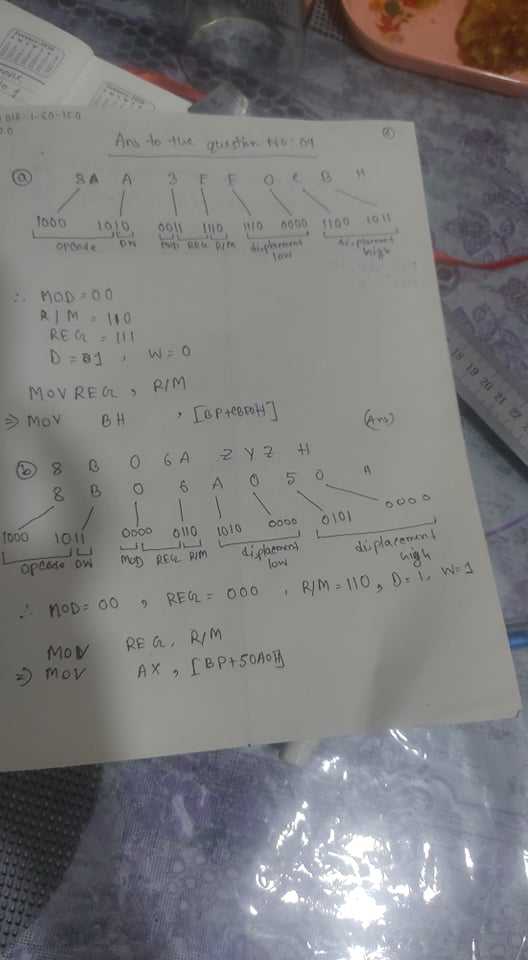 Ans to the question No: 04
(a) 8A A 3 E E 0 C B H
1000 1010 0011 1110 1110 0000 1100 1011
opcode DW MOD REG R/M displacement low displacement high
∴ MOD = 00
R/M = 110
REG = 111
D = 1 , W = 0
MOV REG , R/M
⇒ MOV BH , [BP+CBE0H] (Ans)
(b) 8 B 0 6A Z Y Z H
8 B 0 6 A 0 5 0 H
1000 1011 0000 0110 1010 0000 0101 0000
opcode DW MOD REG R/M displacement low displacement high
∴ MOD = 00 , REG = 000 , R/M = 110 , D = 1, W = 1
MOV REG, R/M
⇒ MOV AX , [BP+50A0H]